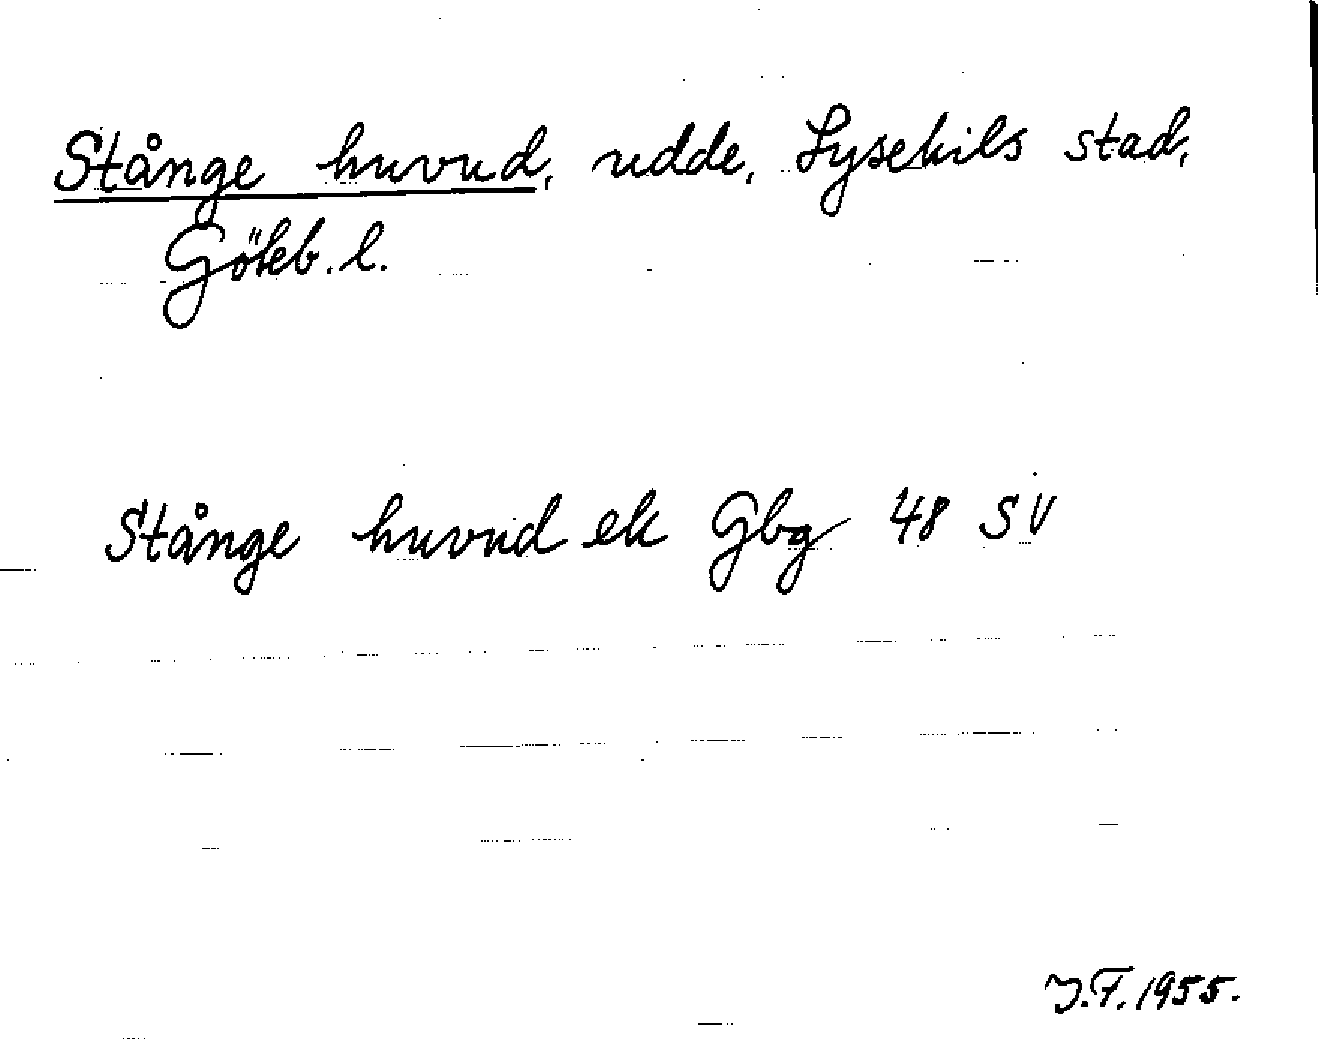 Stånge huvud, udde, Lysekils stad,
Göteb. l.
Stånge huvud ek Gbg 48 SV
J.F. 1955.